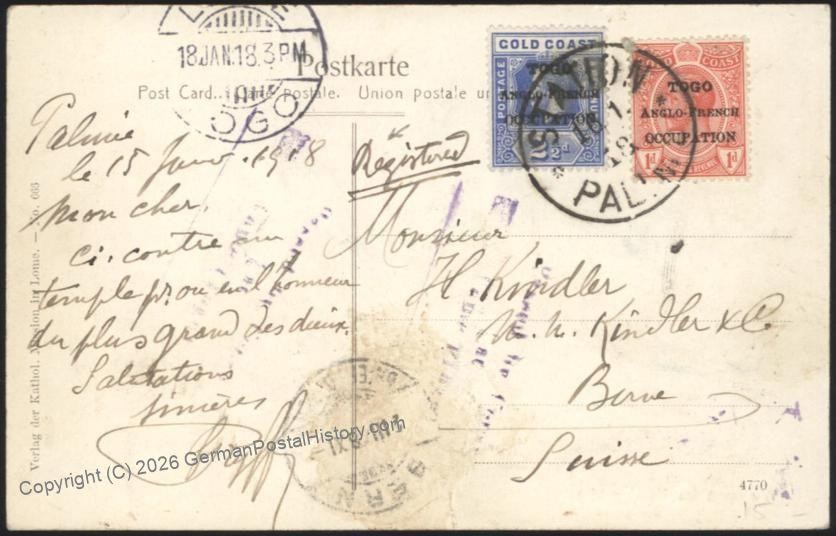 LOME
18 JAN.18.3PM
TOGO
Postkarte
Post Card. Carte postale. Union postale
GOLD COAST
POSTAGE
TOGO
ANGLO-FRENCH
OCCUPATION
2½d
COAST
TOGO
ANGLO-FRENCH
OCCUPATION
1d 1d
STATION
PAL
Palimé
le 15 Janv. 1918
Registered
mon cher.
ci. contre un
temple pr. ou en l'honneur
du plus grand des dieux.
Salutations
sincères
Monsieur
H Kindler
Kindler & C.
Berne
Suisse
BERN
Verlag der Kathol. Mission in Lome. — No. 065
4770
15 —
Copyright (C) 2026 GermanPostalHistory.com